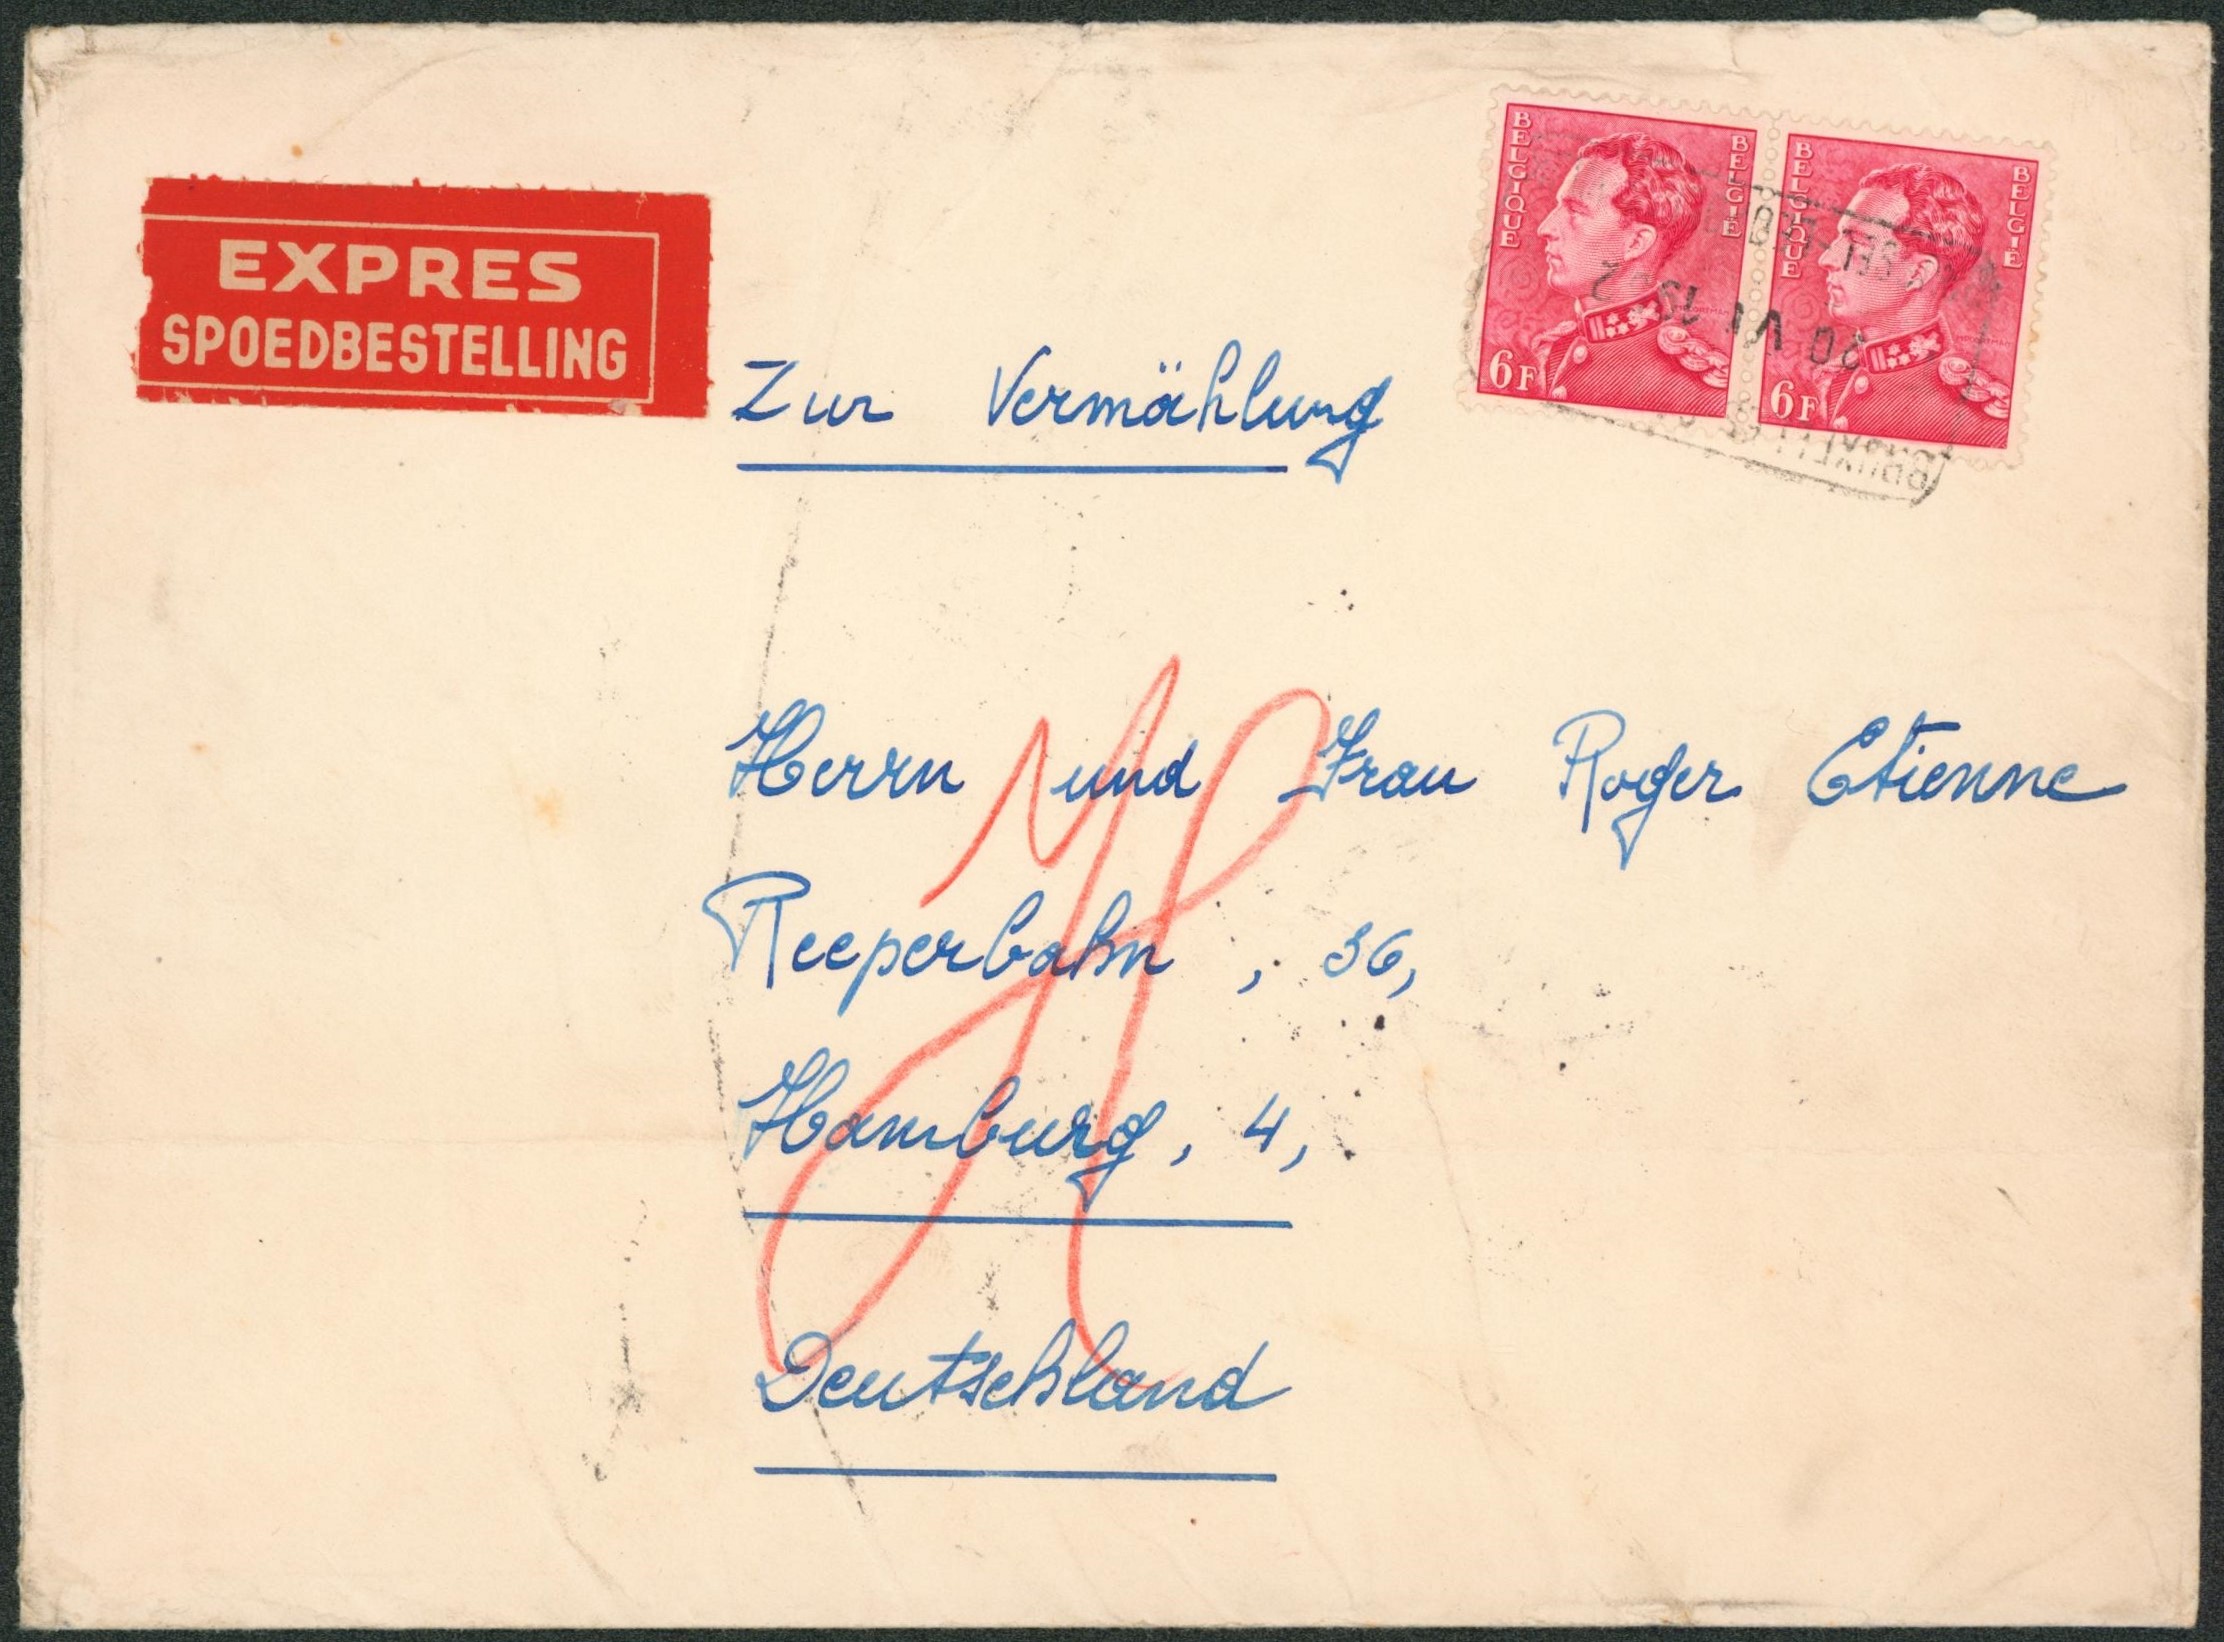 EXPRES
SPOEDBESTELLING
BELGIQUE
BELGIË
6F
BELGIQUE
BELGIË
6F
20 VI
Zur Vermählung
Herrn und Frau Roger Etienne
Reeperbahn, 36,
Hamburg, 4,
Deutschland